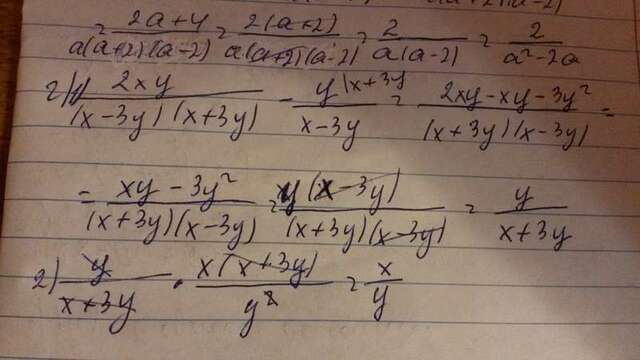 = 2a+4 / a(a+2)(a-2) = 2(a+2) / a(a+2)(a-2) = 2 / a(a-2) = 2 / a²-2a
2xy / (x-3y)(x+3y) - y^{|x+3y} / x-3y = 2xy-xy-3y² / (x+3y)(x-3y) =
= xy-3y² / (x+3y)(x-3y) = y(x-3y) / (x+3y)(x-3y) = y / x+3y
2) y / x+3y · x(x+3y) / y² = x / y